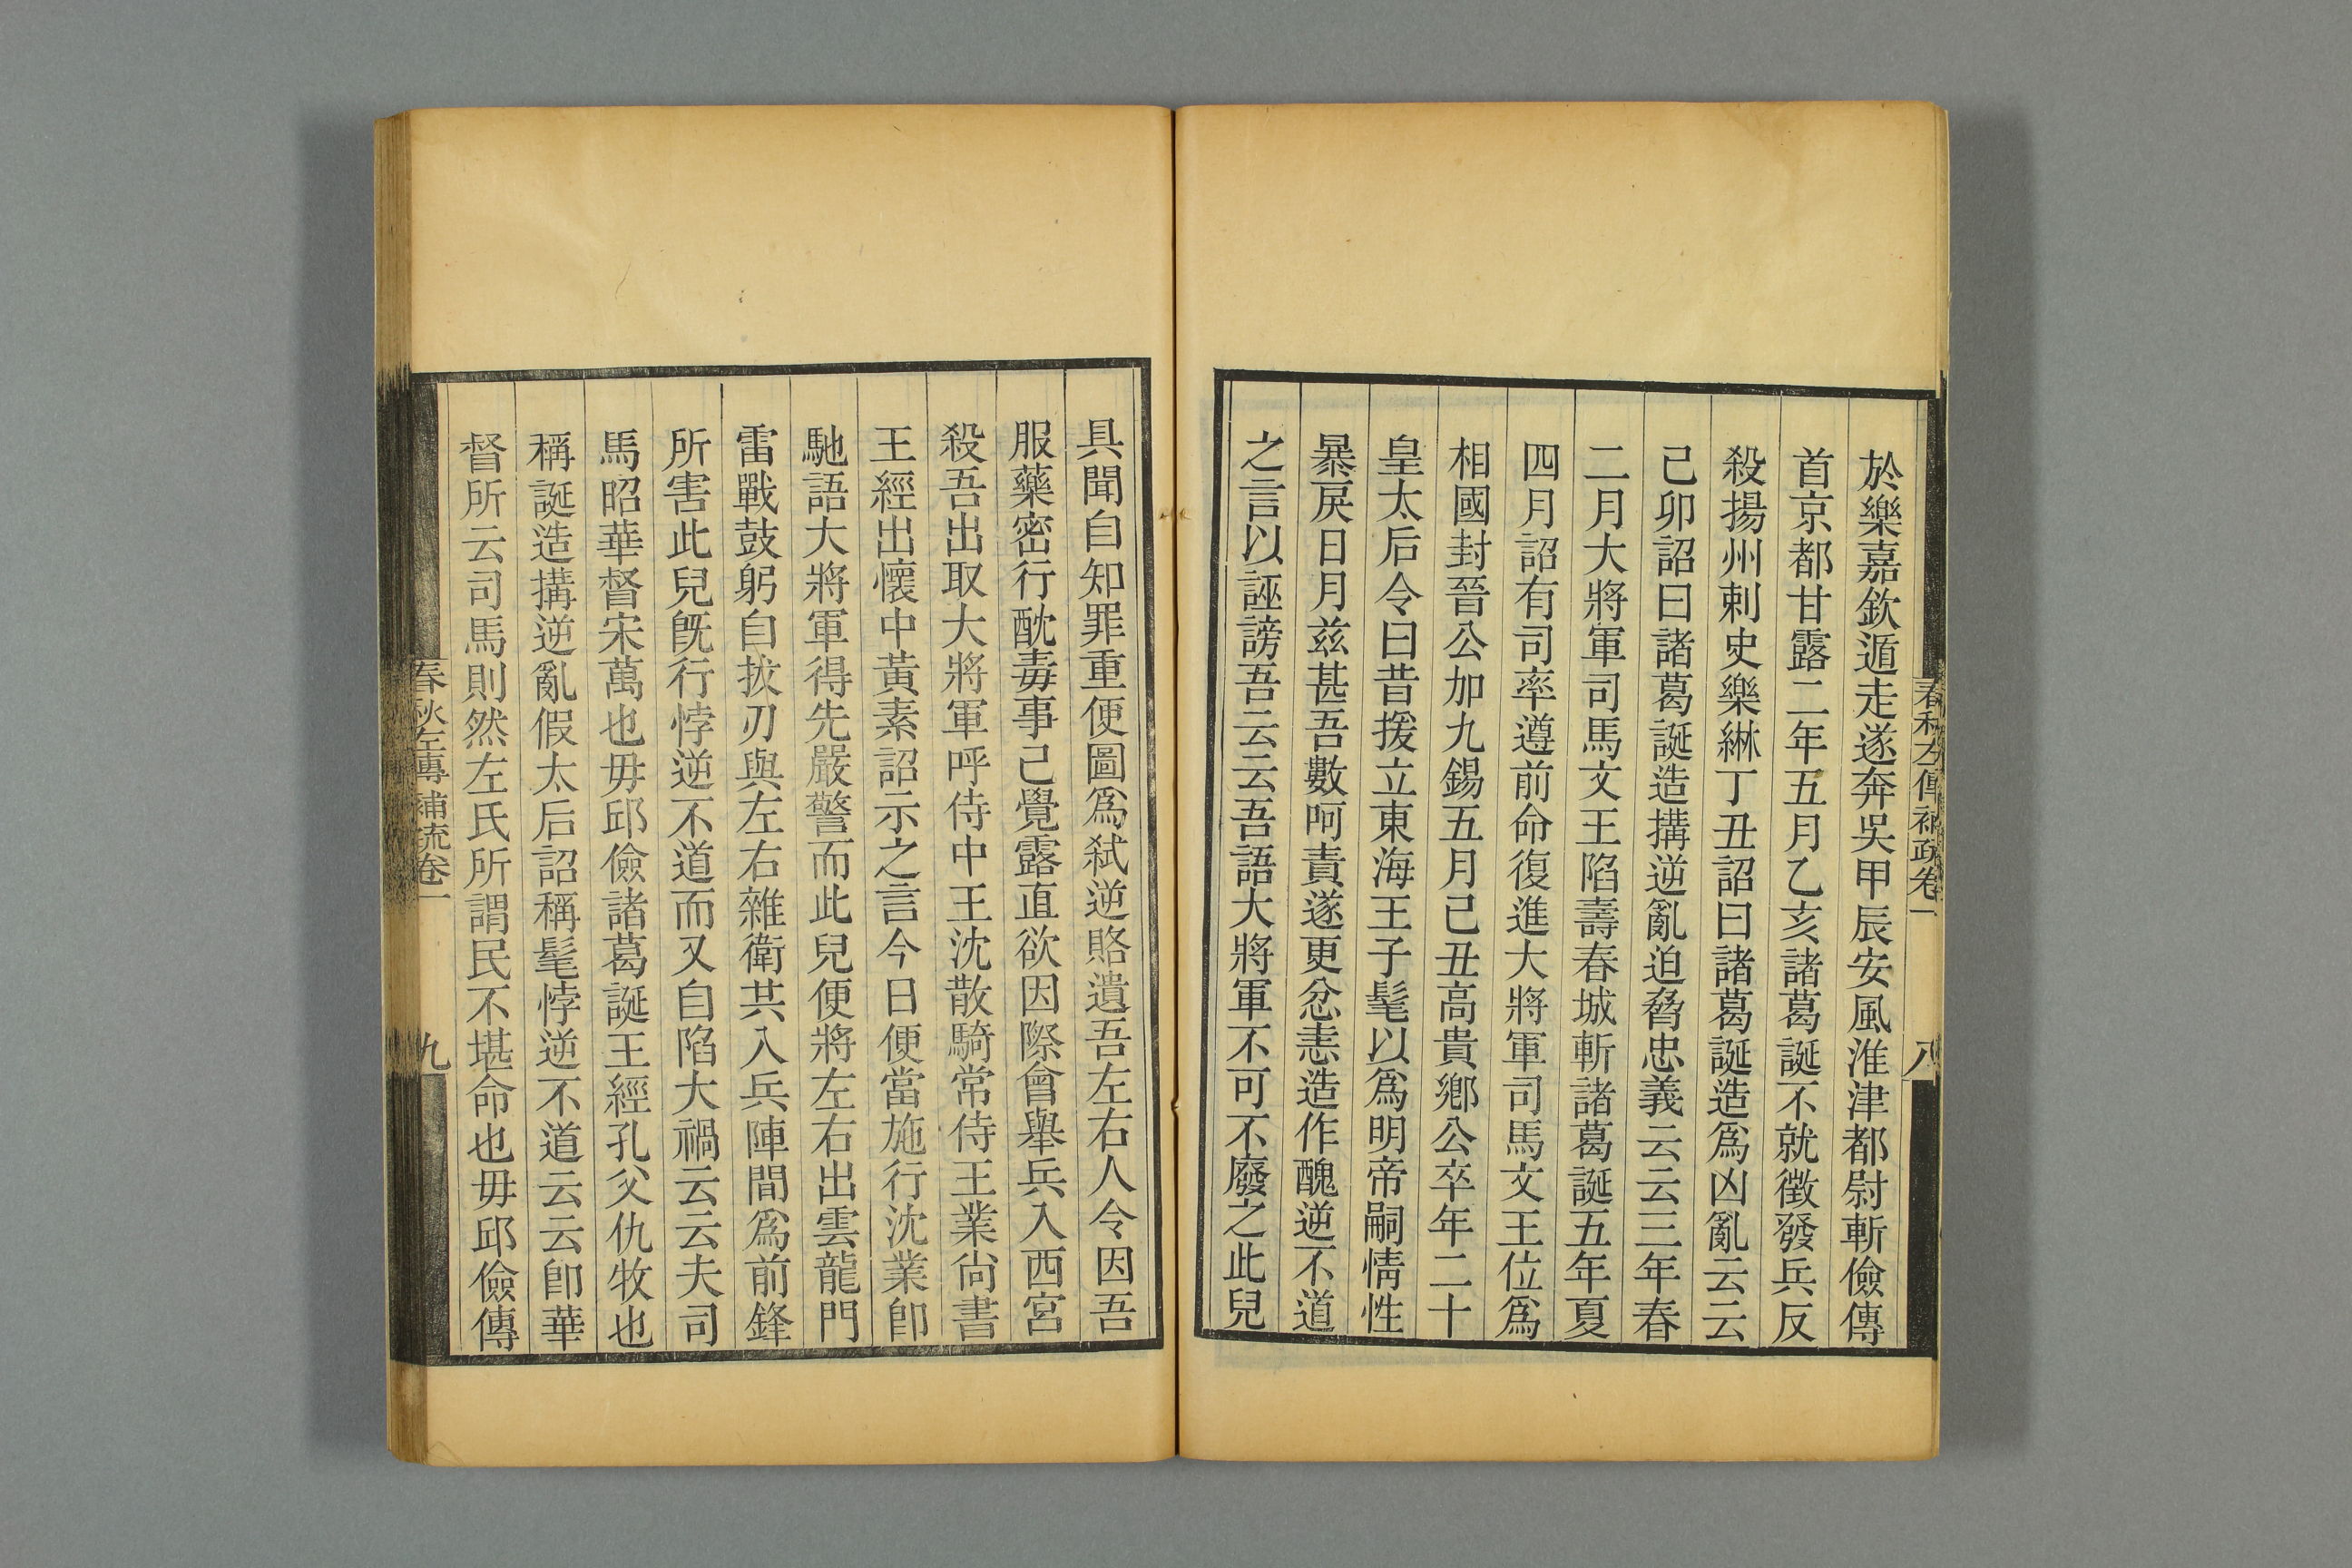 春秋左傳補疏卷一
八
於樂嘉欽遁走遂奔吳甲辰安風淮津都尉斬儉傳
首京都甘露二年五月乙亥諸葛誕不就徵發兵反
殺揚州刺史樂綝丁丑詔曰諸葛誕造爲凶亂云云
己卯詔曰諸葛誕造搆逆亂迫脅忠義云云三年春
二月大將軍司馬文王陷壽春城斬諸葛誕五年夏
四月詔有司率遵前命復進大將軍司馬文王位爲
相國封晉公加九錫五月己丑高貴鄉公卒年二十
皇太后令曰昔援立東海王子髦以爲明帝嗣情性
暴戾日月兹甚吾數呵責遂更忿恚造作醜逆不道
之言以誣謗吾云云吾語大將軍不可不廢之此兒
具聞自知罪重便圖爲弒逆賂遺吾左右人令因吾
服藥密行酖毒事己覺露直欲因際會舉兵入西宮
殺吾出取大將軍呼侍中王沈散騎常侍王業尙書
王經出懷中黃素詔示之言今日便當施行沈業卽
馳語大將軍得先嚴警而此兒便將左右出雲龍門
雷戰鼓躬自拔刃與左右雜衞共入兵陣間爲前鋒
所害此兒旣行悖逆不道而又自陷大禍云云夫司
馬昭華督宋萬也毋邱儉諸葛誕王經孔父仇牧也
稱誕造搆逆亂假太后詔稱髦悖逆不道云云卽華
督所云司馬則然左氏所謂民不堪命也毋邱儉傳
春秋左傳補疏卷一
九